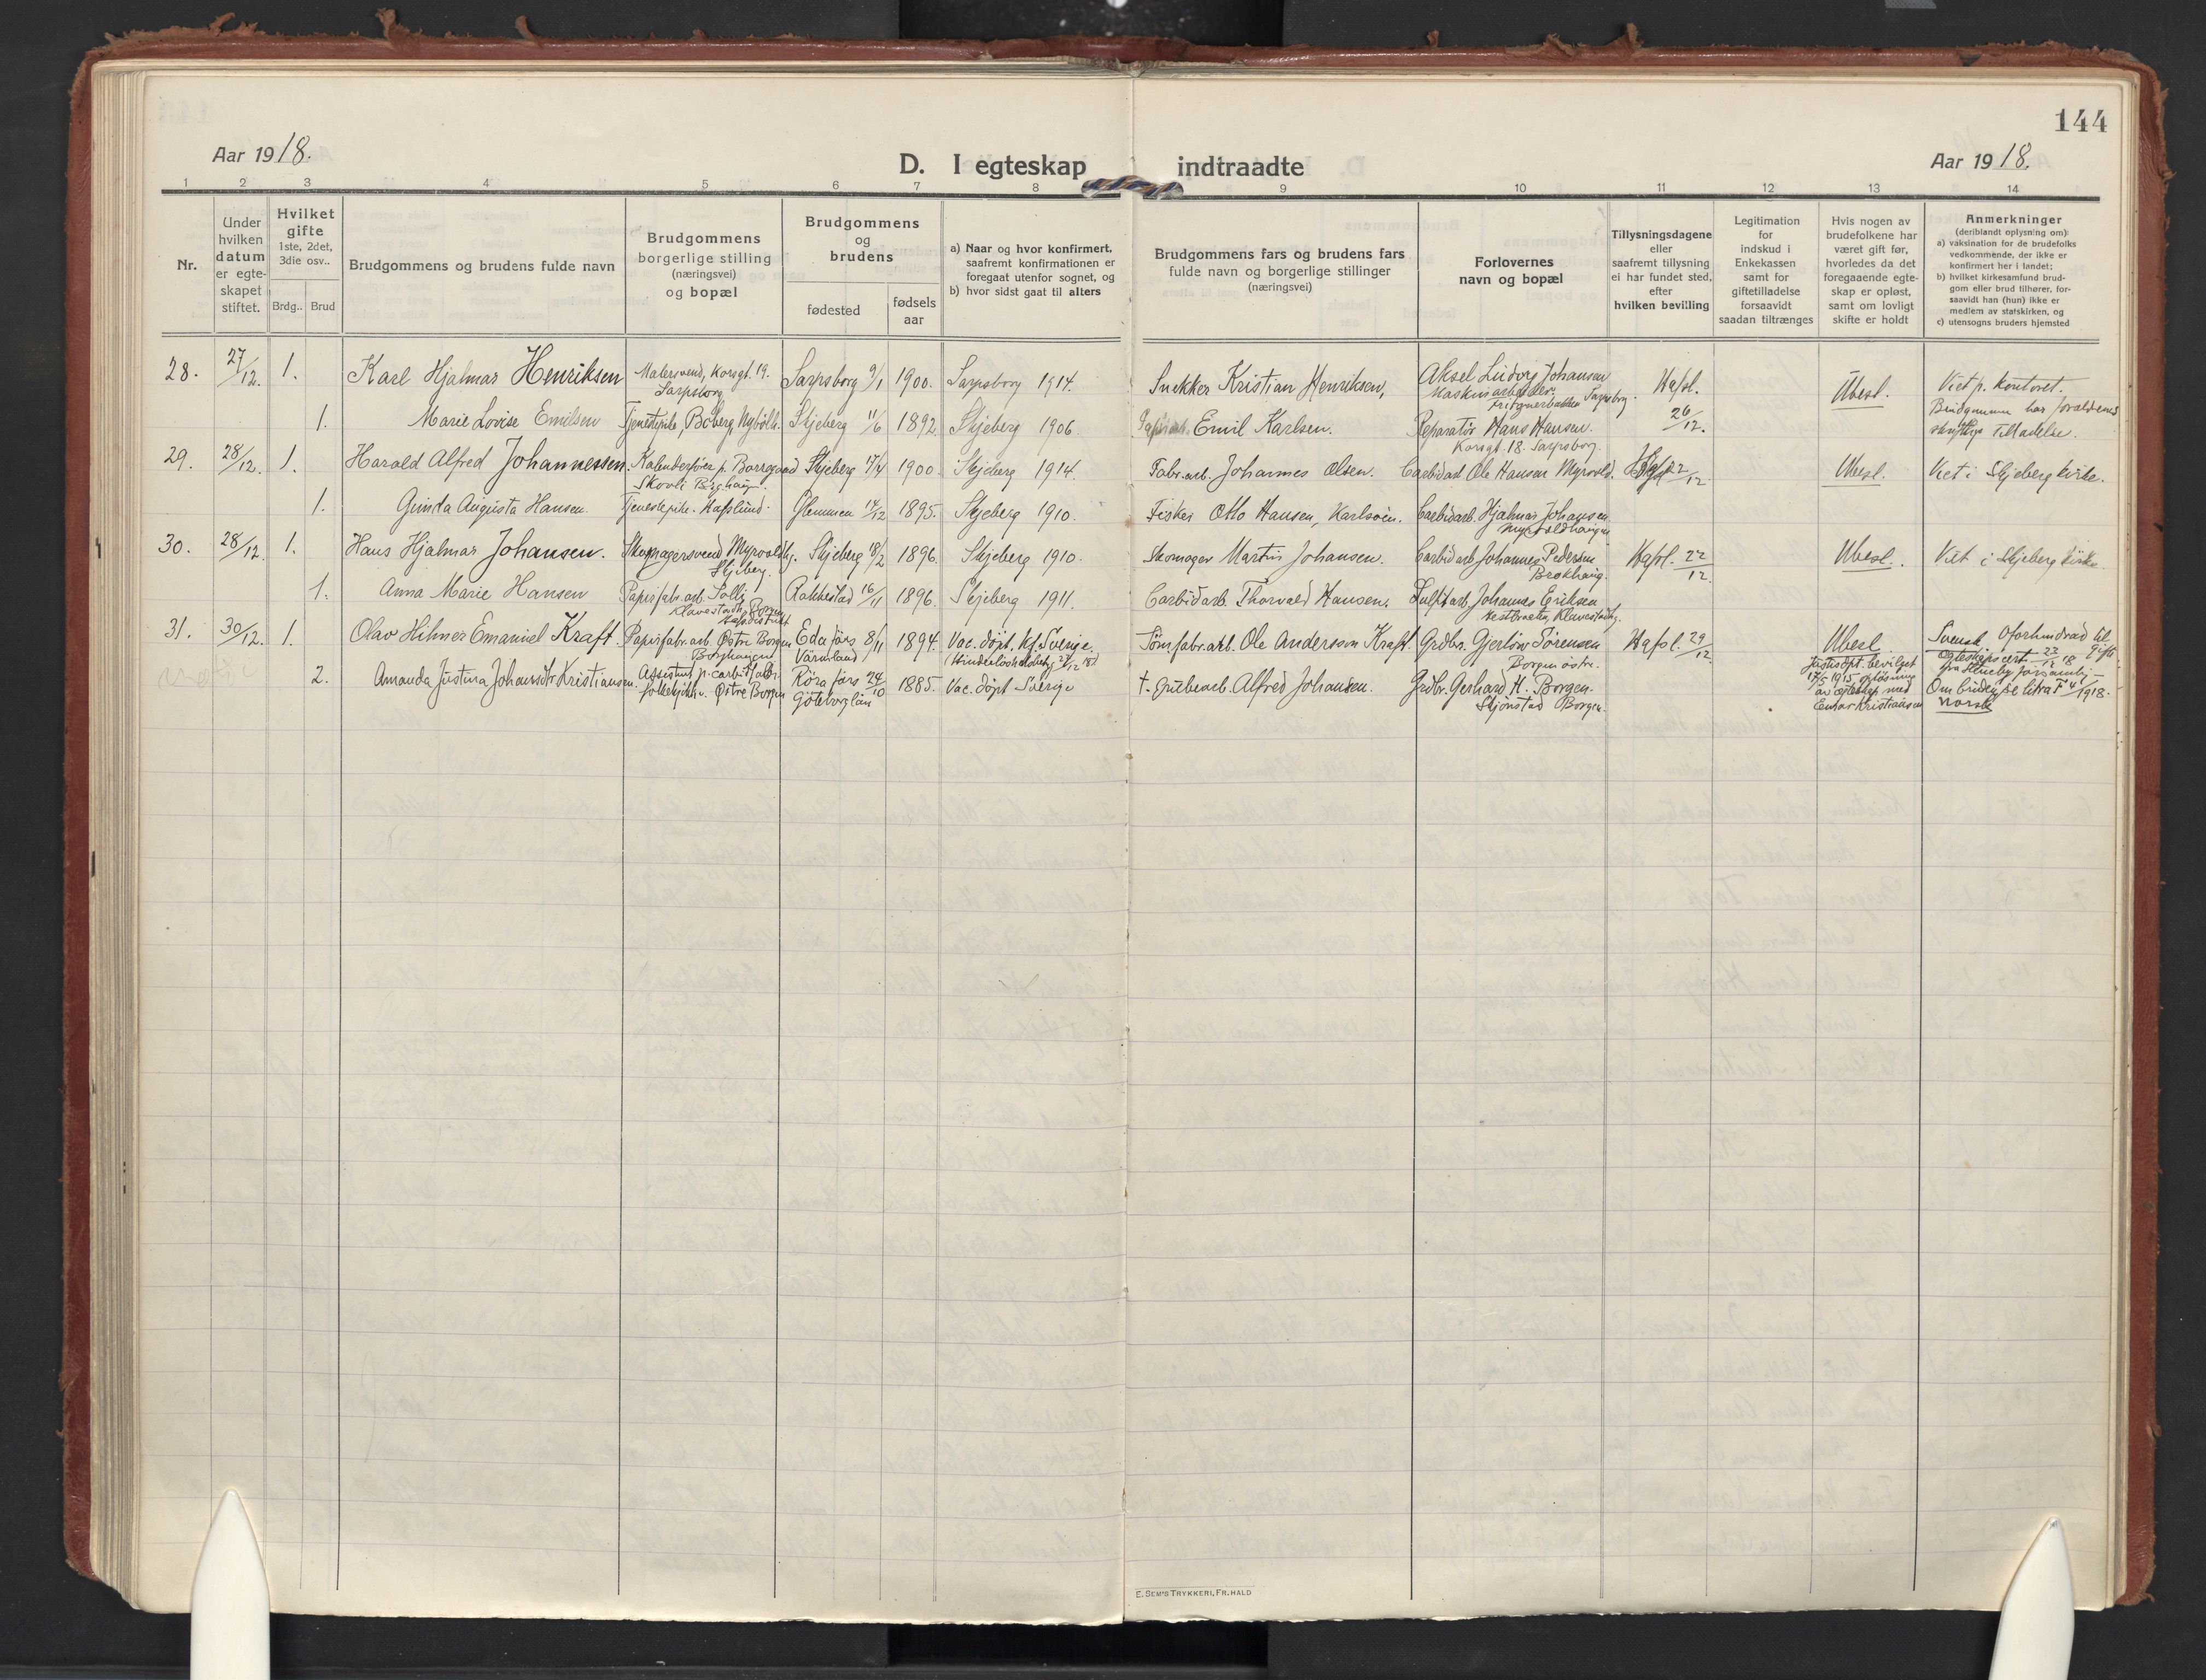 144
Aar 1918.
D. I egteskap indtraadte
Aar 1918.
1 2 3 4 5 6 7 8 9 10 11 12 13 14
Nr.
Under hvilken datum er egte-skapet stiftet.
Hvilket gifte 1ste, 2det, 3die osv..
Brdg.. Brud
Brudgommens og brudens fulde navn
Brudgommens borgerlige stilling (næringsvei) og bopæl
Brudgommens og brudens
fødested
fødsels aar
a) Naar og hvor konfirmert, saafremt konfirmationen er foregaat utenfor sognet, og
b) hvor sidst gaat til alters
Brudgommens fars og brudens fars fulde navn og borgerlige stillinger (næringsvei)
Forlovernes navn og bopæl
Tillysningsdagene eller saafremt tillysning ei har fundet sted, efter hvilken bevilling
Legitimation for indskud i Enkekassen samt for giftetilladelse forsaavidt saadan tiltrænges
Hvis nogen av brudefolkene har været gift før, hvorledes da det foregaaende egte-skap er opløst, samt om lovligt skifte er holdt
Anmerkninger (deriblandt oplysning om):
a) vaksination for de brudefolks vedkommende, der ikke er konfirmert her i landet;
b) hvilket kirkesamfund brud-gom eller brud tilhører, for-saavidt han (hun) ikke er medlem av statskirken, og
c) utensogns bruders hjemsted
28. 27/12. 1. Karl Hjalmar Henriksen Malersvend, Korsgt. 19. Sarpsborg Sarpsborg 9/1 1900. Sarpsborg 1914. Snekker Kristian Henriksen, Aksel Ludvig Johansen Maskinarbeider. Sarpsborg. Hafsl. 26/12. Ubesl. Viet p. kontoret.
Brudgommen har forældrenes skriftlige tilladelse.
1. Marie Lovise Emilsen Tjenestepike, Boberg, Nybölh. Skjeberg 11/6 1892 Skjeberg 1906. Emil Karlsen. Reparatör Hans Hansen. Korsgt. 18. Sarpsborg.
29. 28/12. 1. Harald Alfred Johannessen. Kalenderfører p. Borregaard Skovli Borghaugen. Skjeberg 17/4 1900. Skjeberg 1914. Fabr.arb. Johannes Olsen. Carbidarb Ole Hansen Myrvold. Hafsl 22/12. Ubesl. Viet i Skjeberg kirke.
1. Gunda Augusta Hansen. Tjenestepike. Hafslund. Glemmen 14/12 1895. Skjeberg 1910. Fisker Otto Hansen, Karlsöen. Carbidarb. Hjalmar Johansen Myrvoldhaugen
30. 28/12. 1. Hans Hjalmar Johansen. Skomagersvend Myrvoldhg. Skjeberg. Skjeberg 18/2 1896. Skjeberg 1910. Skomager Martin Johansen. Carbidarb Johannes Pedersen Brekhaug. Hafsl. 22/12. Ubesl.. Viet i Skjeberg kirke.
1. Anna Marie Hansen Papirfabr.arb. Solli, Klavestadh. Borgen Hafs. distrikt Rakkestad 16/11 1896. Skjeberg 1911. Carbidarb. Thorvald Hansen. Sulfitarb. Johannes Eriksen Klavestadhg.
31. 30/12. 1. Olav Hilmer Emanuel Kraft. Papirfabr.arb Østre Borgen Borghaugen Eda förs Värmland 8/11 1894. Vac. döpt, kf. Sverige. Tömfabr.arb. Ole Andersson Kraft. Grdbr. Gjerlöw Sörensen Borgen østre. Hafsl. 29/12. Ubesl Svensk Oforhindrad til gifte Ægteskaps cert 23/12 18
2. Amanda Justina Johansdtr Kristiansen. Assistent p. carbidfabr. folkekjökk. Østre Borgen Röra förs Göteborg län 24/10 1885. Vac. döpt Sverige † Grubearb. Alfred Johansen. Grdbr. Gerhard H. Borgen. Skjönstad Borgen. Justisdpt. bevilget 17/5 1915 oplösning av ægteskap med Einar Kristiansen Om bruden se litra F 4/1918. norsk
E. SEM'S TRYKKERI, FR. HALD